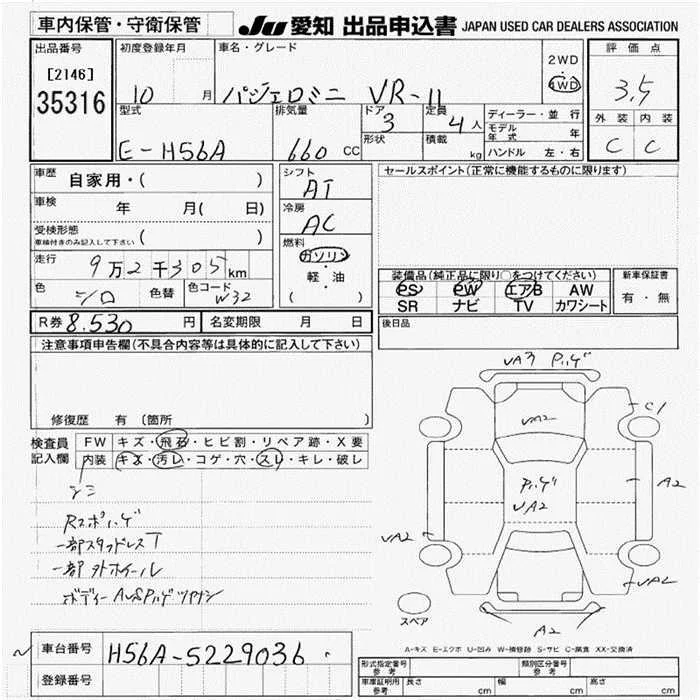 車内保管・守衛保管
JU 愛知 出品申込書 JAPAN USED CAR DEALERS ASSOCIATION
出品番号
[2146]
35316
初度登録年月
10 月
車名・グレード
パジェロミニ VR-II
2WD
4WD
評価点
3.5
外装 内装
C C
型式
E-H56A
排気量
660 CC
ドア
3
形状
定員
4 人
積載
kg
ディーラー・並行
モデル年式 年
ハンドル 左・右
車歴
自家用・( )
車検
年 月( 日)
受検形態
車検付きのみ記入して下さい ( )
走行
9万2千305km
色
シロ
色替
色コード
W32
シフト
AT
冷房
AC
燃料
ガソリン
軽・油
( )
セールスポイント(正常に機能するものに限ります)
装備品(純正品に限り○をつけてください)
PS PW エアB AW
SR ナビ TV カワシート
新車保証書
有・無
R券 8.530 円
名変期限 月 日
後日品
注意事項申告欄(不具合内容等は具体的に記入して下さい)
修復歴 有 〔箇所 〕
検査員記入欄
FW キズ・飛石・ヒビ割・リペア跡・X要
内装 キズ・汚レ・コゲ・穴・スレ・キレ・破レ
シミ
Rスポハゲ
一部スタッドレスT
一部外ホイール
VA3 ハゲ
C1
UA2
ハゲ
UA2
A2
UA2
UAL
A2
スペア
A-キズ E-エクボ U-凹み W-補修跡 S-サビ C-腐食 XX-交換済
車台番号
H56A-5229036
登録番号
形式指定番号 参考
類別区分番号 参考
車庫証明用 参考
長さ cm
幅 cm
高さ cm